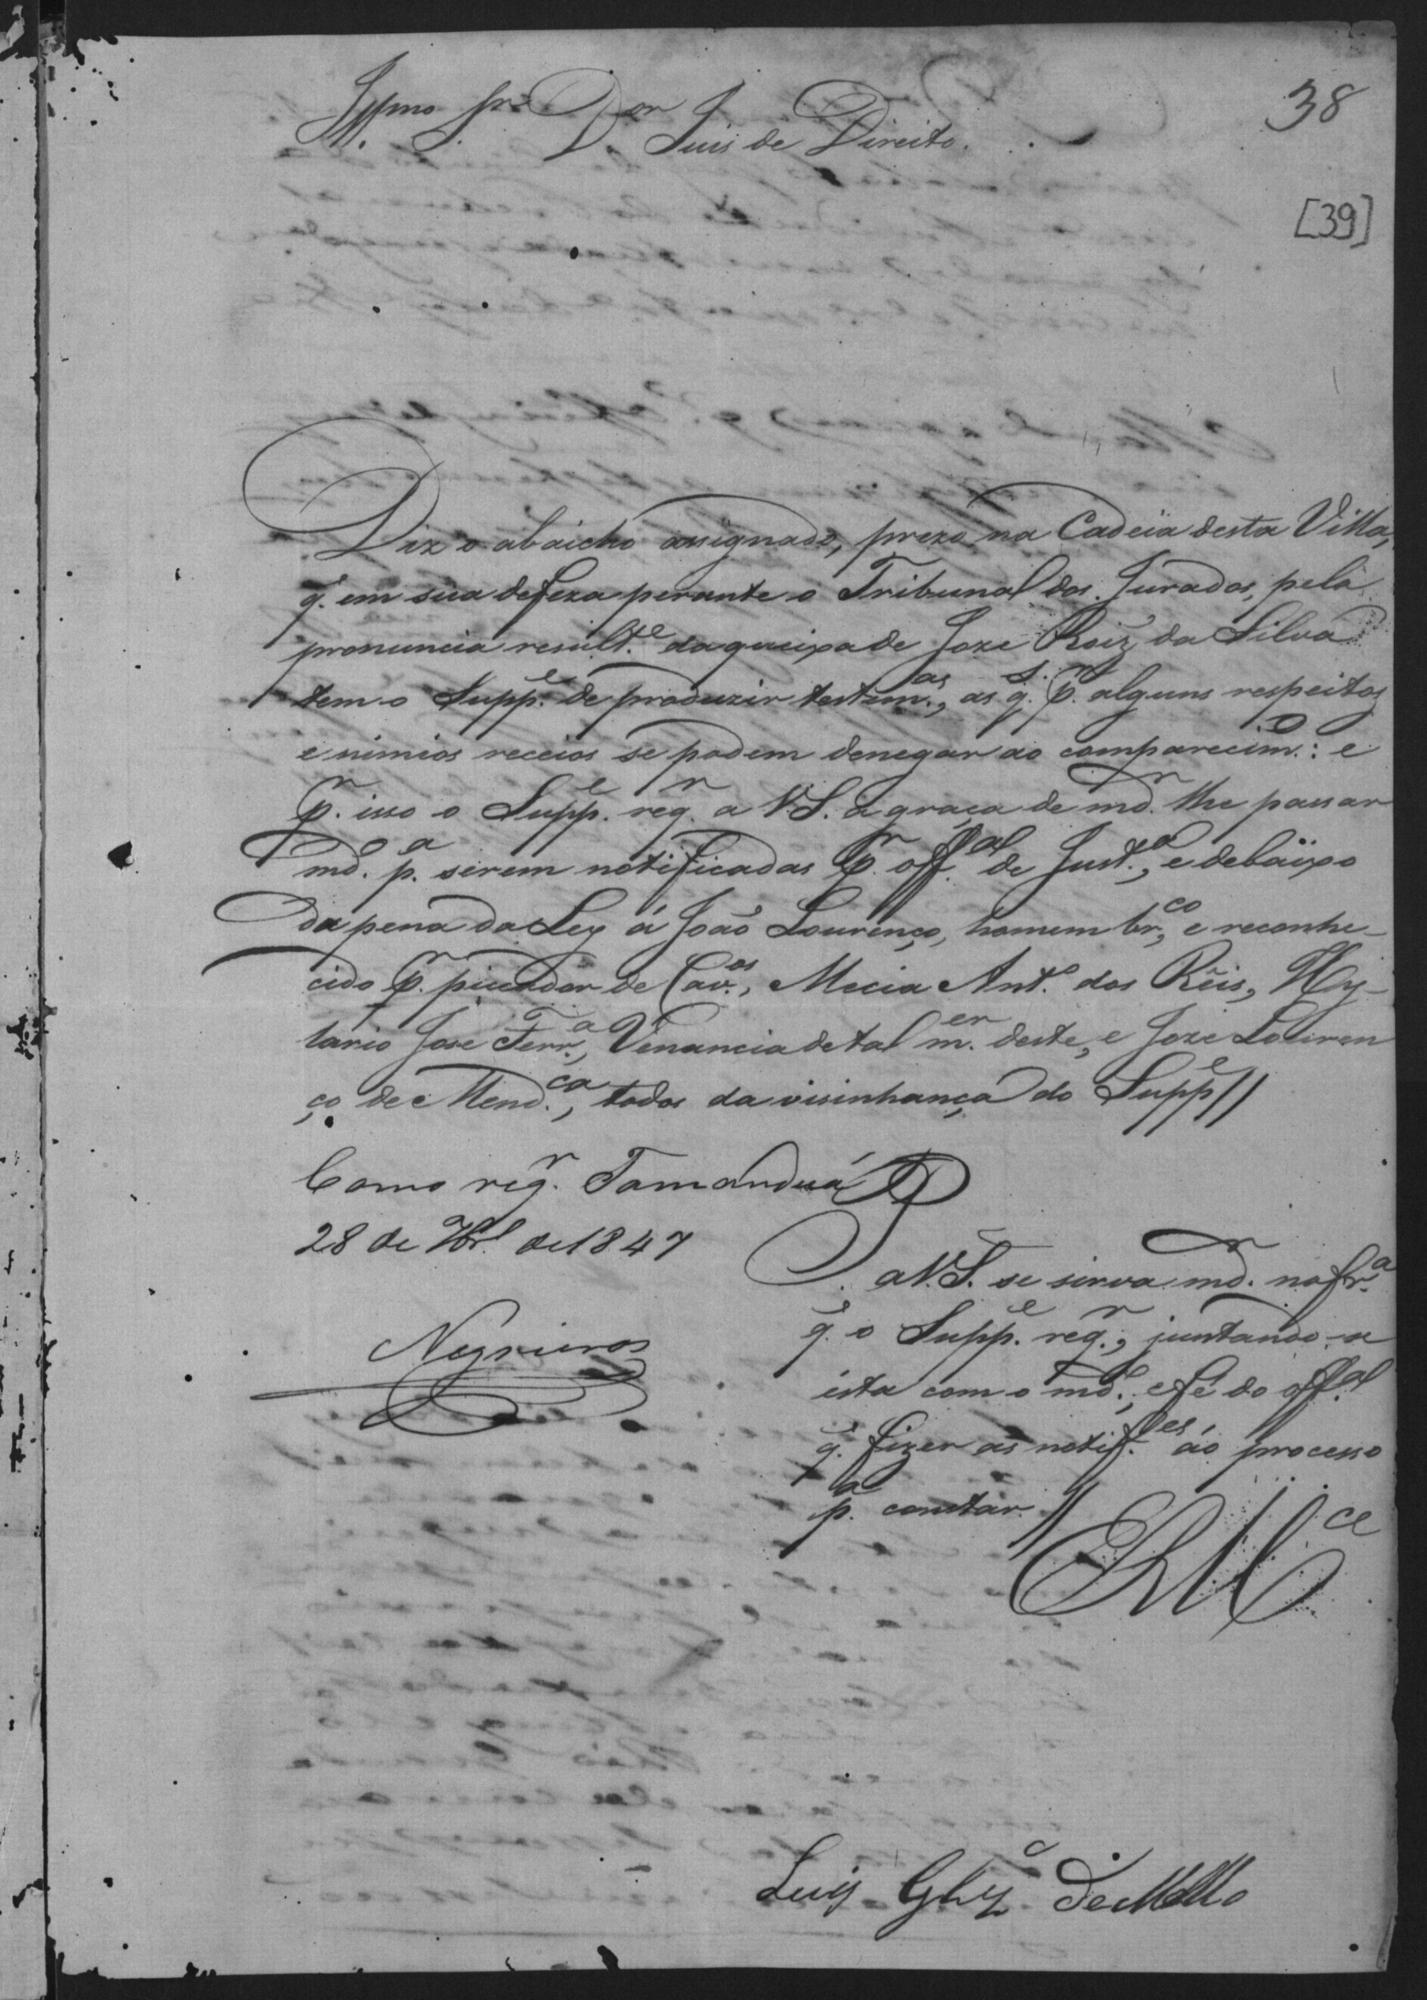 Illmo. Snr. Dor. Juis de Direito.
38
[39]
Diz o abaicho assignado, prezo na Cadeia desta Villa,
q. em sua defeza perante o Tribunal dos Jurados, pela
pronuncia result.e da queixa de Joze Roiz da Silva
tem o Supp.e de produzir testem.as, as q. p.r alguns respeitos
e nimios receios se podem denegar ao comparecim.o: e
p.r isso o Supp.e req.r a V.S. a graça de md.r lhe passar
md.o p.a serem notificadas p.r off.al de Just.a, e debaixo
da pena da Ley á João Lourenço, homem br.co, e reconhe-
cido p.r picador de Cav.os, Mecia Ant.a dos Reis, Hy-
lario José Ferr.a, Venancia de tal m.er deste, e Joze Louren
ço de Mend.ça, todos da visinhança do Supp.e //
Como req.r Tamanduá
28 de 7br.o de 1847
Negreiros
P. a V.S. se sirva md.r na fr.a
q. o Supp.e req.r, juntando-se
esta com o md.o, e fé do off.al
q. fizer as notif.es ao processo
p.a constar //
E R M.ce
Luis Glz. de Mello